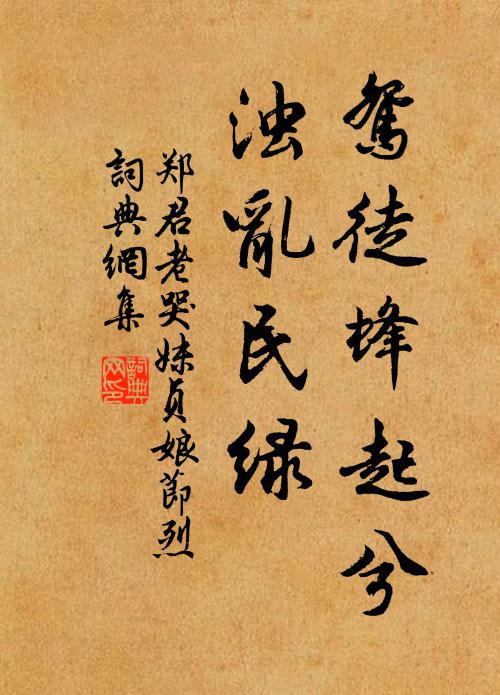 鸳徒蜂起兮
浊亂民緑
郑君老哭妹贞娘節烈
詞典網集
詞典网印